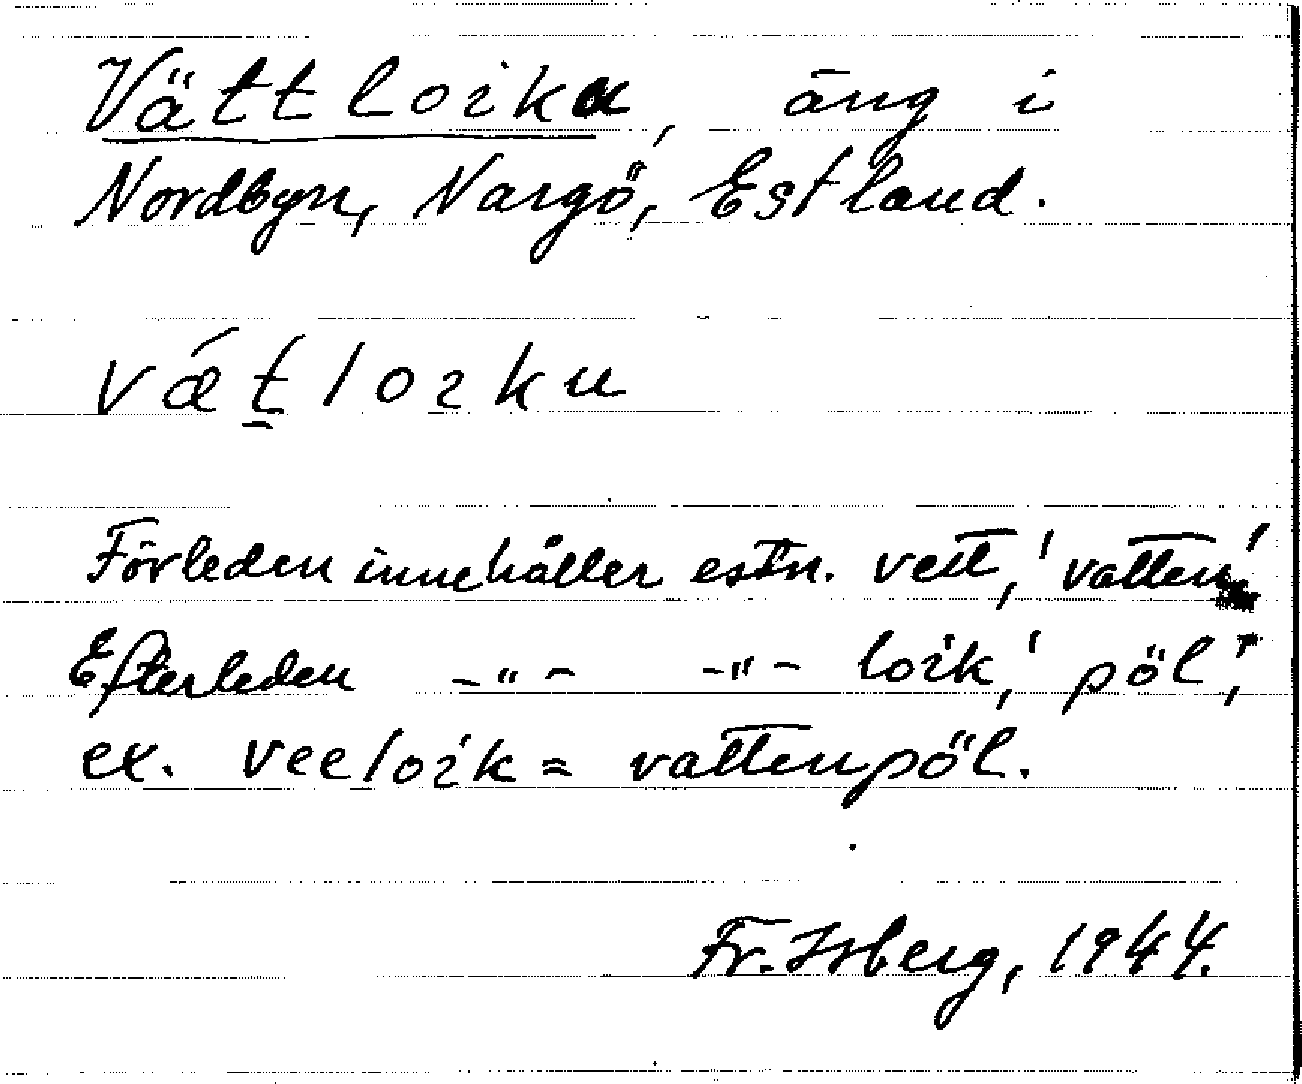 Vättloiku, äng i
Nordbyn, Nargö, Estland.
vǽt̲loiku
Förleden innehåller estn. vett, 'vatten'
Efterleden -"- -"- loik, 'pöl',
ex. veeloik = vattenpöl.
Fr. Isberg, 1944.